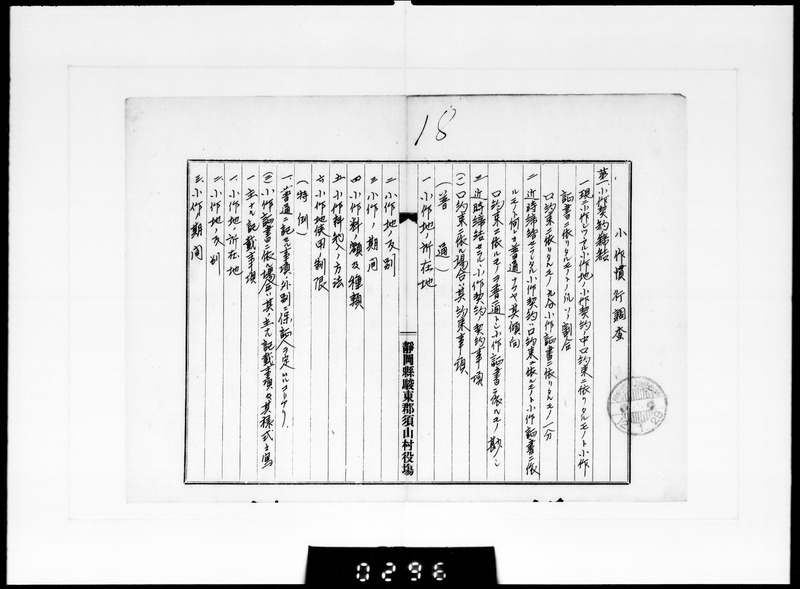 18
小作慣行調査
第一 小作契約締結
一 現ニ小作シツヽアル小作地ノ小作契約中口約束ニ依リタルモノト小作
証書ニ依リタルモノトノ凡ソノ割合
口約束ニ依リタルモノ九分 小作証書ニ依リタルモノ一分
二 近時締結セラレタル小作契約ハ口約束ニ依ルモノト小作証書ニ依
ルモノト何レカ普通ナリヤ其傾向
口約束ニ依ルモノヲ普通トシ小作証書ニ依ルモノ尠ナシ
三 近時締結セラルヽ小作契約ノ契約事項
(一) 口約束ニ依ル場合ノ其約束事項
(普通)
一 小作地ノ所在地
二 小作地ノ反別
三 小作ノ期間
四 小作料ノ額及種類
五 小作料納入ノ方法
六 小作地使用ノ制限
(特例)
一、普通ニ記セル事項ノ外別ニ保証人ヲ定ムルコトアリ
(二) 小作証書ニ依ル場合ノ其主ナル記載事項及其様式ノ写
一 主ナル記載事項
一、小作地ノ所在地
二、小作地ノ反別
三、小作ノ期間
靜岡縣駿東郡須山村役場
0296